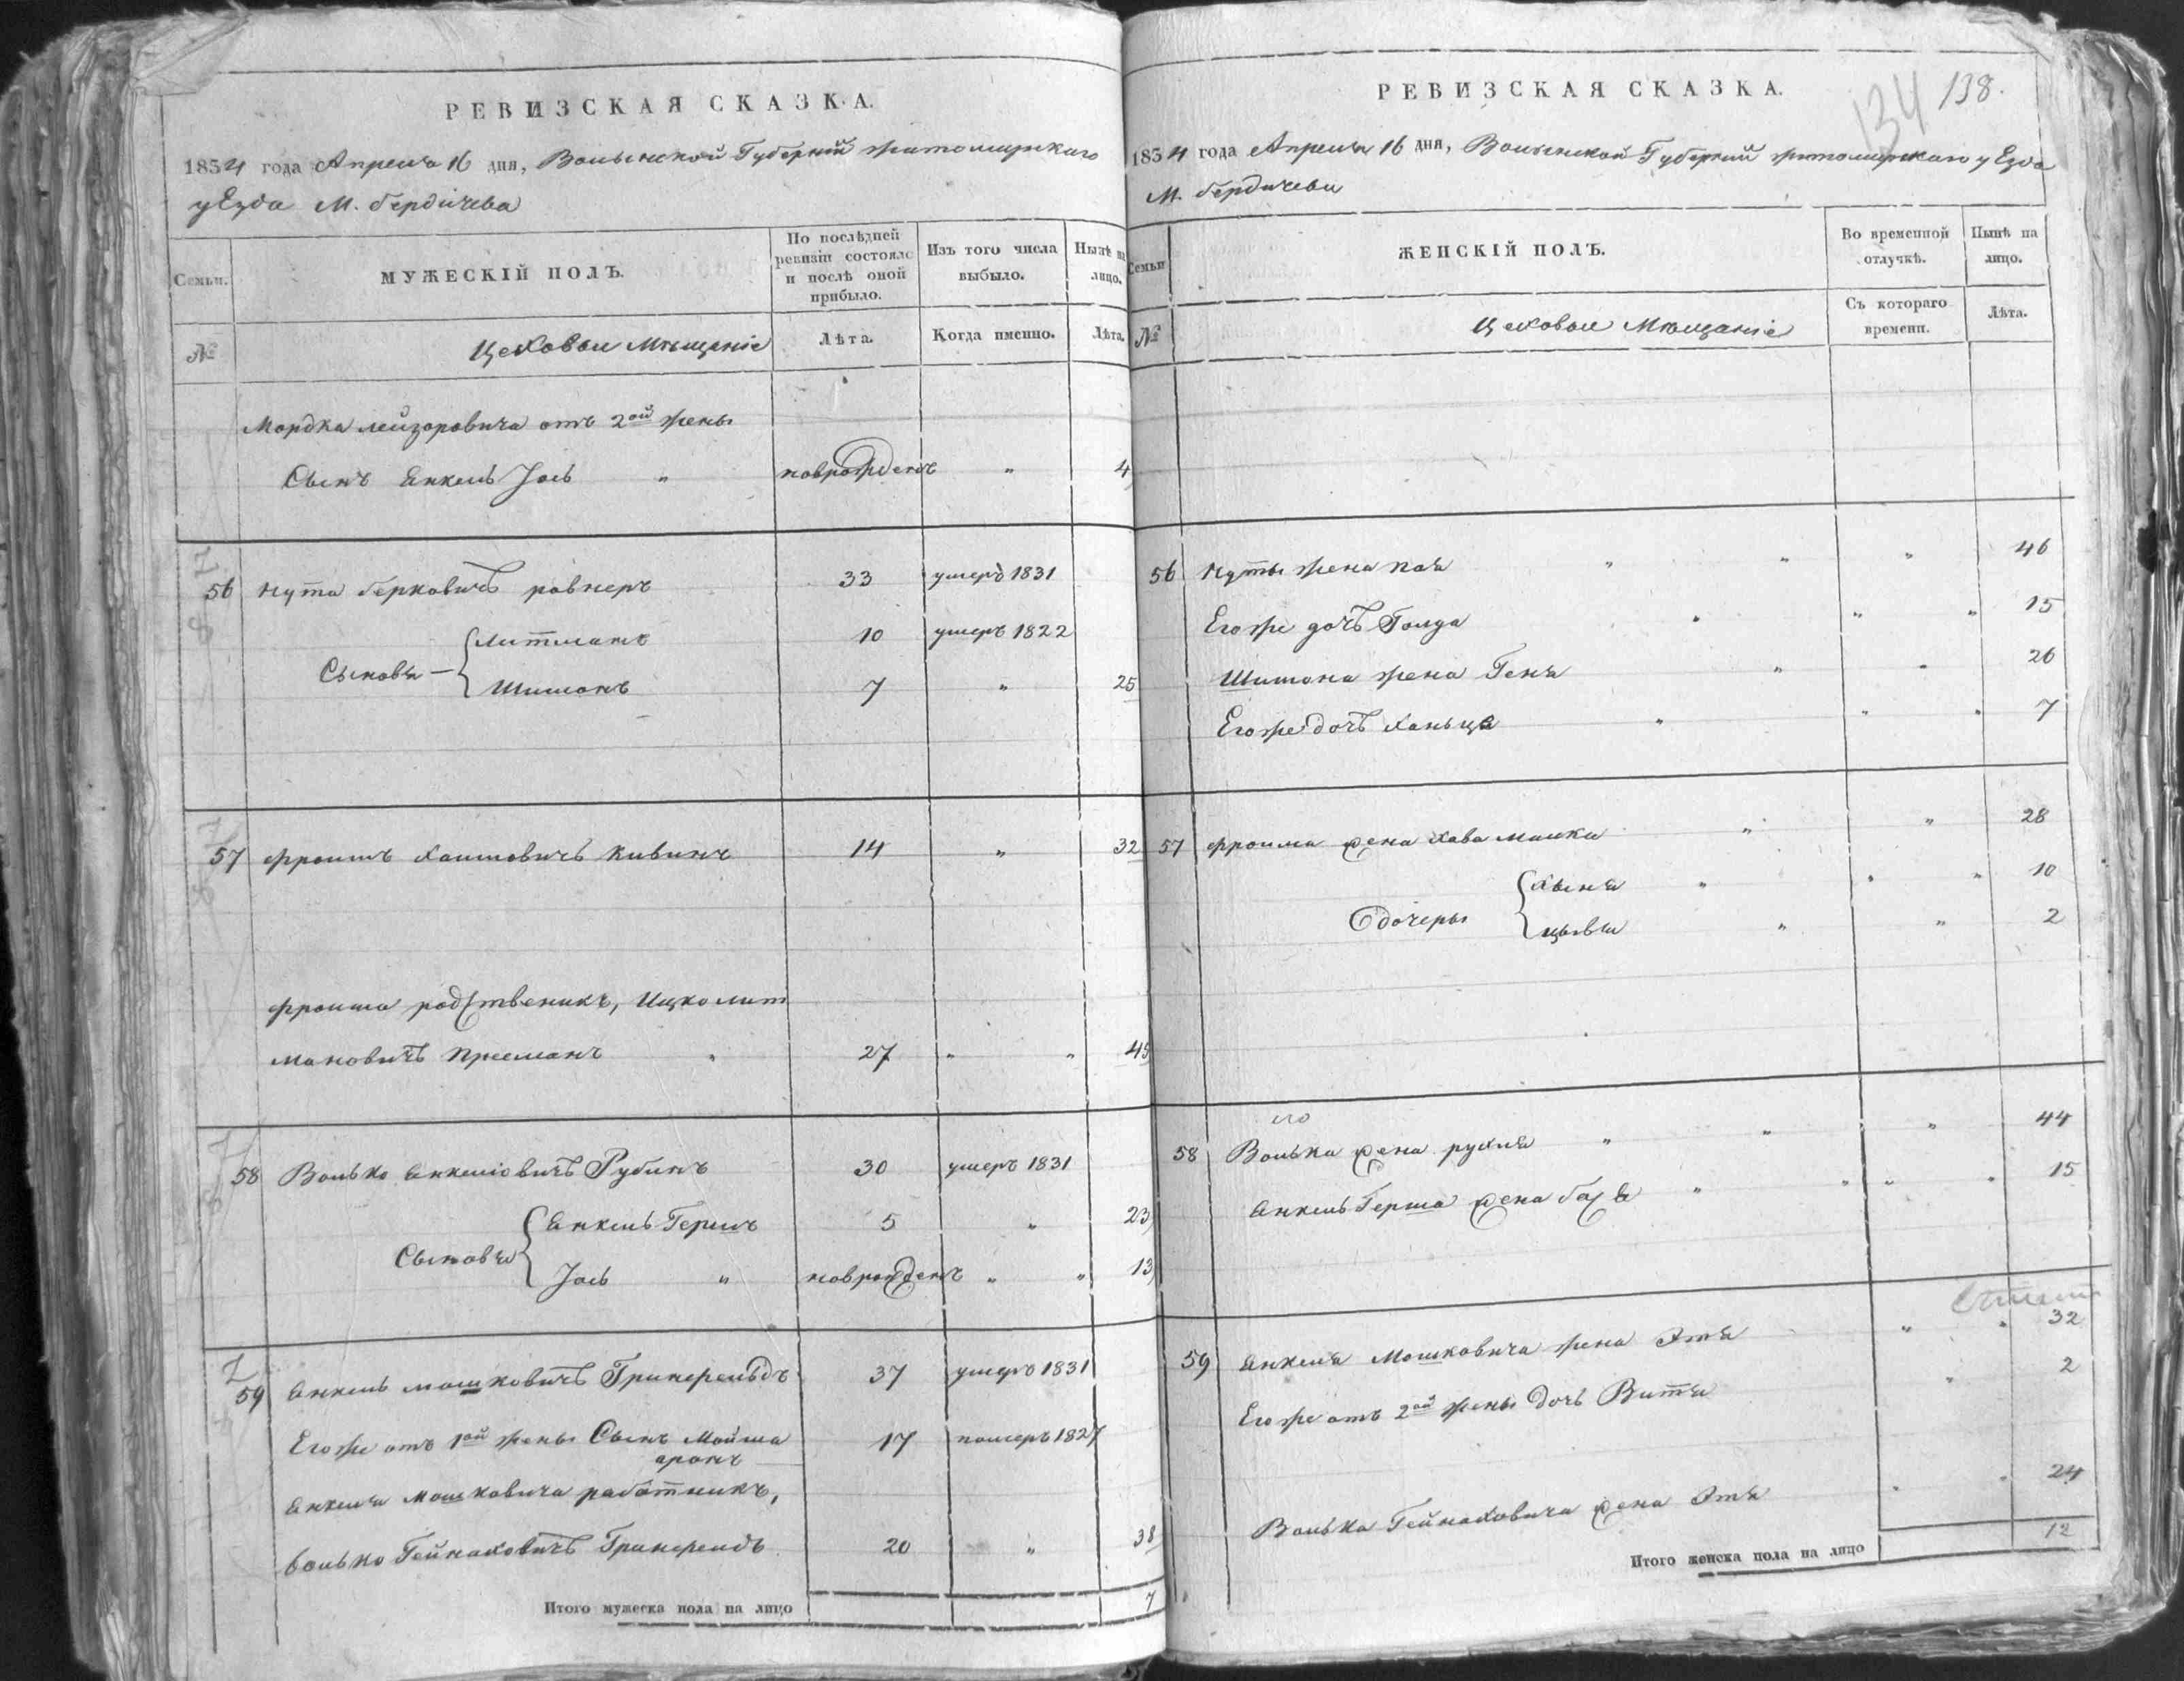 РЕВИЗСКАЯ СКАЗКА.
1834 года Апреля 16 дня, Волынской Губерніи житомирскаго
уЕзда М. бердичева
Семьи.
МУЖЕСКІЙ ПОЛЪ.
По послѣдней ревизіи состояло и послѣ оной прибыло.
Изъ того числа выбыло.
Нынѣ на лицо.
№
Цеховыи Мѣщаніе
Лѣта.
Когда именно.
Лѣта.
Мордка лейзоровича отъ 2ой жены
Сынъ Янкель Іось " новрожденъ " 4
56 Нута берковичъ ровнеръ 33 умеръ 1831
Сыновья
Литманъ 10 умеръ 1822
Шимонъ 7 " 25
57 Фроимъ Хаимовичъ Кивинъ 14 " 32
Фроима родственикъ, Ицко лит
мановичъ 27 " " 45
58 Волько Янкеліовичъ Рубинъ 30 умеръ 1831
Сыновья
Янкель Гершъ 5 " 23
Іось " новрожденъ " " 13
59 Янкель мошковичъ 37 умеръ 1831
Егоже отъ 1ой жены Сынъ Мойша
аронъ 17 померъ 1827
Янкеля Мошковича работникъ,
Волько Гейнаховичъ 20 " 38
Итого мужеска пола на лицо 7
РЕВИЗСКАЯ СКАЗКА.
134 138.
1834 года Апреля 16 дня, Волынской Губерніи житомирскаго уЕзда
М. бердичева
Семьи
ЖЕНСКІЙ ПОЛЪ.
Во временной отлучкѣ.
Нынѣ на лицо.
№
Цеховыи Мѣщаніе
Съ котораго времени.
Лѣта.
56 Нуты жена Пая " " " 46
Егоже дочъ Голда " " " 15
Шимона жена Геня " " 26
Егоже дочъ Ханьця " " " 7
57 Фроима жена Хава Малки " " 28
дочеры
Хыня " " " 10
цывья " " 2
его
58 Волька жена рухля " " " 44
Янкель Герша жена бася " " " " 15
59 Янкеля Мошковича жена Этя " " 32
Егоже отъ 2ой жены дочь Витя " 2
Волька Гейнаховича жена Этя " " 24
Итого женска пола на лицо 12